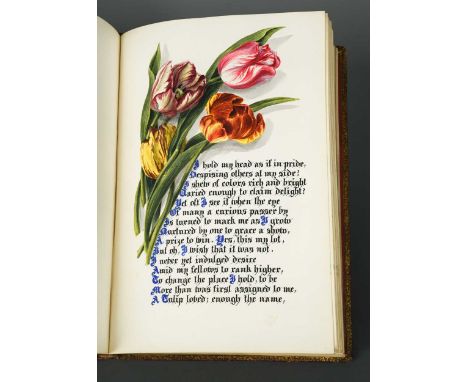 I hold my head as if in pride,
Despising others at my side!
I shew of colors rich and bright
Varied enough to claim delight!
Yet oft I see if when the eye
Of many a curious passer by
Is turned to mark me as I grow
Nurtured by one to grace a show,
A prize to win. Yes, this my lot,
But oh, I wish that it was not.
I never yet indulged desire
Amid my fellows to rank higher,
To change the place I hold, to be
More than was first assigned to me,
A Tulip loved; enough the name,